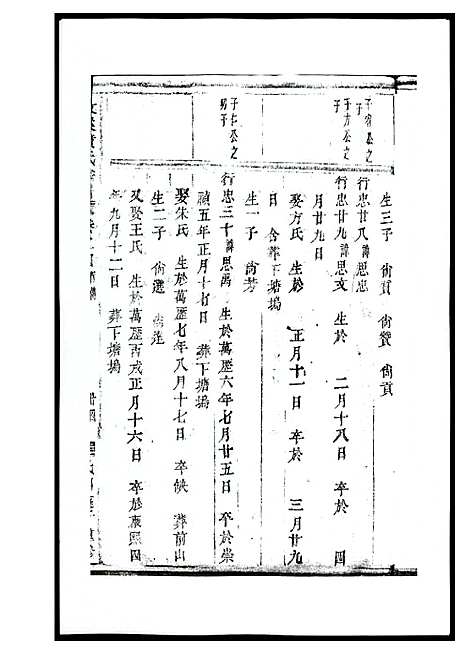 生三子 尙賓 尙贊 尙貢
子
行忠廿八諱思忠
行忠廿九諱思文 生於 二月十八日 卒於 四
月廿九日
娶方氏 生於 正月十一日 卒於 三月廿九
日 合葬下塘塢
生一子 尙芳
子仁公之
行忠三十諱思禹 生於萬歷六年七月廿五日 卒於崇
禎五年正月十七日 葬下塘塢
娶朱氏 生於萬歷七年八月十七日 卒缺 葬前山
生二子 尙選 尙進
又娶王氏 生於萬歷 戌正月十六日 卒於康熙四
年九月十二日 葬下塘塢